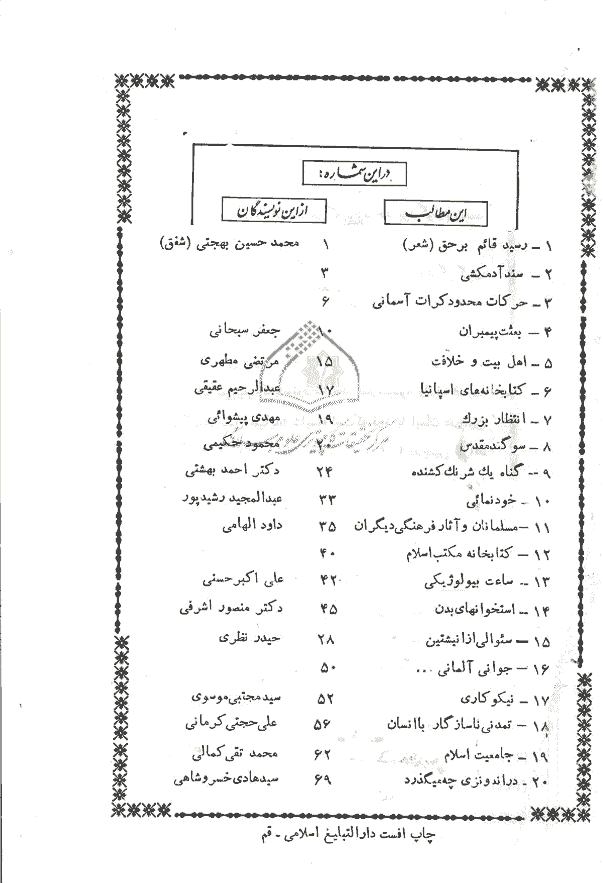 در این شماره:
این مطالب از این نویسندگان
۱ ـ رسید قائم برحق (شعر) ۱ محمد حسین بهجتی (شفق)
۲ ـ سند آدمکشی ۳
۳ ـ حرکات محدود کرات آسمانی ۶
۴ ـ بعثت پیمبران ۱۰ جعفر سبحانی
۵ ـ اهل بیت و خلافت ۱۵ مرتضی مطهری
۶ ـ کتابخانه‌های اسپانیا ۱۷ عبدالرحیم عقیقی
۷ ـ انتظار بزرك ۱۹ مهدی پیشوائی
۸ ـ سوگند مقدس ۲۰ محمود حکیمی
۹ -- گناه یك شرنك کشنده ۲۴ دکتر احمد بهشتی
۱۰ ـ خودنمائی ۳۳ عبدالمجید رشیدپور
۱۱ ـ مسلمانان و آثار فرهنگی دیگران ۳۵ داود الهامی
۱۲ ـ کتابخانه مکتب اسلام ۴۰
۱۳ ـ ساعت بیولوژیکی ۴۲ علی اکبر حسنی
۱۴ ـ استخوانهای بدن ۴۵ دکتر منصور اشرفی
۱۵ ـ سئوالی از انیشتین ۲۸ حیدر نظری
۱۶ ـ جوانی آلمانی ... ۵۰
۱۷ ـ نیکوکاری ۵۲ سید مجتبی موسوی
۱۸ ـ تمدنی ناسازگار با انسان ۵۶ علی حجتی کرمانی
۱۹ ـ جامعیت اسلام ۶۲ محمد تقی کمالی
۲۰ ـ در اندونزی چه میگذرد ۶۹ سید هادی خسروشاهی
چاپ افست دارالتبلیغ اسلامی ـ قم